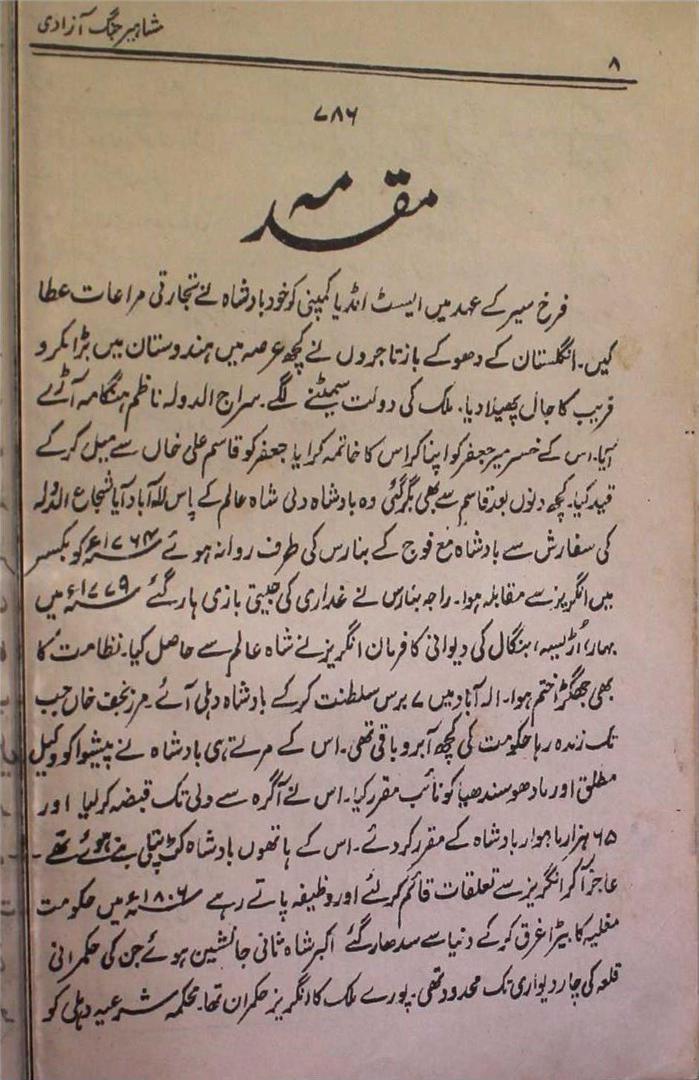 مشاہیر جنگ آزادی
۸
۷۸۶
مقدمہ
فرخ سیر کے عہد میں ایسٹ انڈیا کمپنی کو خود بادشاہ نے تجارتی مراعات عطا
کیں۔ انگلستان کے دھوکے باز تاجروں نے کچھ عرصہ میں ہندوستان میں بڑا مکر و
فریب کا جال پھیلا دیا۔ ملک کی دولت سمیٹنے لگے۔ سراج الدولہ ناظم ہنگامہ آڑے
آیا۔ اس کے خسر میر جعفر کو اپنا کر اس کا خاتمہ کرایا جعفر کو قاسم علی خاں سے میل کر کے
قید کیا۔ کچھ دنوں بعد قاسم سے بھی بگڑ گئی وہ بادشاہ دلی شاہ عالم کے پاس الہ آباد آیا شجاع الدولہ
کی سفارش سے بادشاہ مع فوج کے بنارس کی طرف روانہ ہوئے ۱۷۶۴ء کو بکسر
میں انگریز سے مقابلہ ہوا۔ راجہ بنارس نے غداری کی جیتی بازی ہار گئے ۱۷۷۹ء میں
بہار، اُڑیسہ، بنگال کی دیوانی کا فرمان انگریز نے شاہ عالم سے حاصل کیا۔ نظامت کا
بھی جھگڑا ختم ہوا۔ الہ آباد میں ۷ برس سلطنت کر کے بادشاہ دہلی آئے۔ مرزا نجف خان جب
تک زندہ رہا حکومت کی کچھ آبرو باقی تھی۔ اس کے مرتے ہی بادشاہ نے پیشوا کو وکیل
مطلق اور مادھو سندھیا کو نائب مقرر کیا۔ اس نے آگرہ سے دلی تک قبضہ کر لیا اور
۶۵ ہزار ماہوار بادشاہ کے مقرر کر دئے۔ اس کے ہاتھوں بادشاہ کٹھ پتلی بنے ہوئے تھے۔
عاجز آ کر انگریز سے تعلقات قائم کر لئے اور وظیفہ پاتے رہے ۱۸۰۶ء میں حکومت
مغلیہ کا بیڑا غرق کر کے دنیا سے سدھار گئے اکبر شاہ ثانی جانشین ہوئے جن کی حکمرانی
قلعہ کی چار دیواری تک محدود تھی۔ پورے ملک کا انگریز حکمران تھا۔ محکمہ شرعیہ دہلی کو